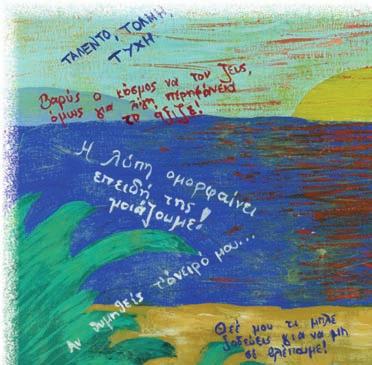 ΤΑΛΕΝΤΟ, ΤΟΛΜΗ,
ΤΥΧΗ
Βαρύς ο κόσμος να τον ζεις,
όμως για λίγη περηφάνεια
το άξιζε!
Η λύπη ομορφαίνει
επειδή της
μοιάζουμε!
Αν θυμηθείς τ' όνειρό μου...
Θεέ μου τι μπλε
ξοδεύεις για να μη
σε βλέπουμε!